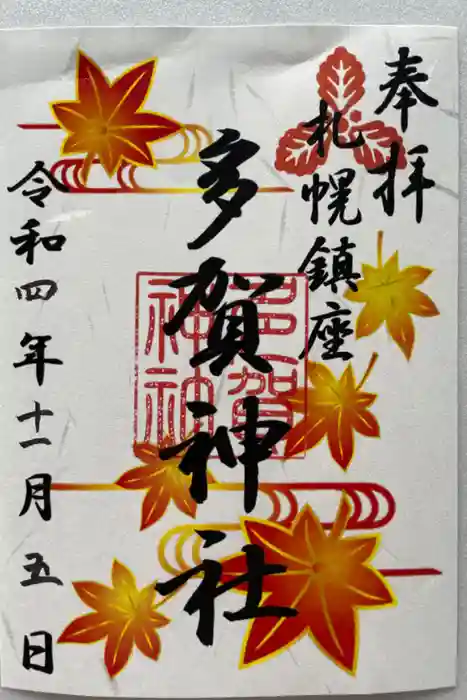 奉拝
札幌鎮座
多賀神社
令和四年十一月五日